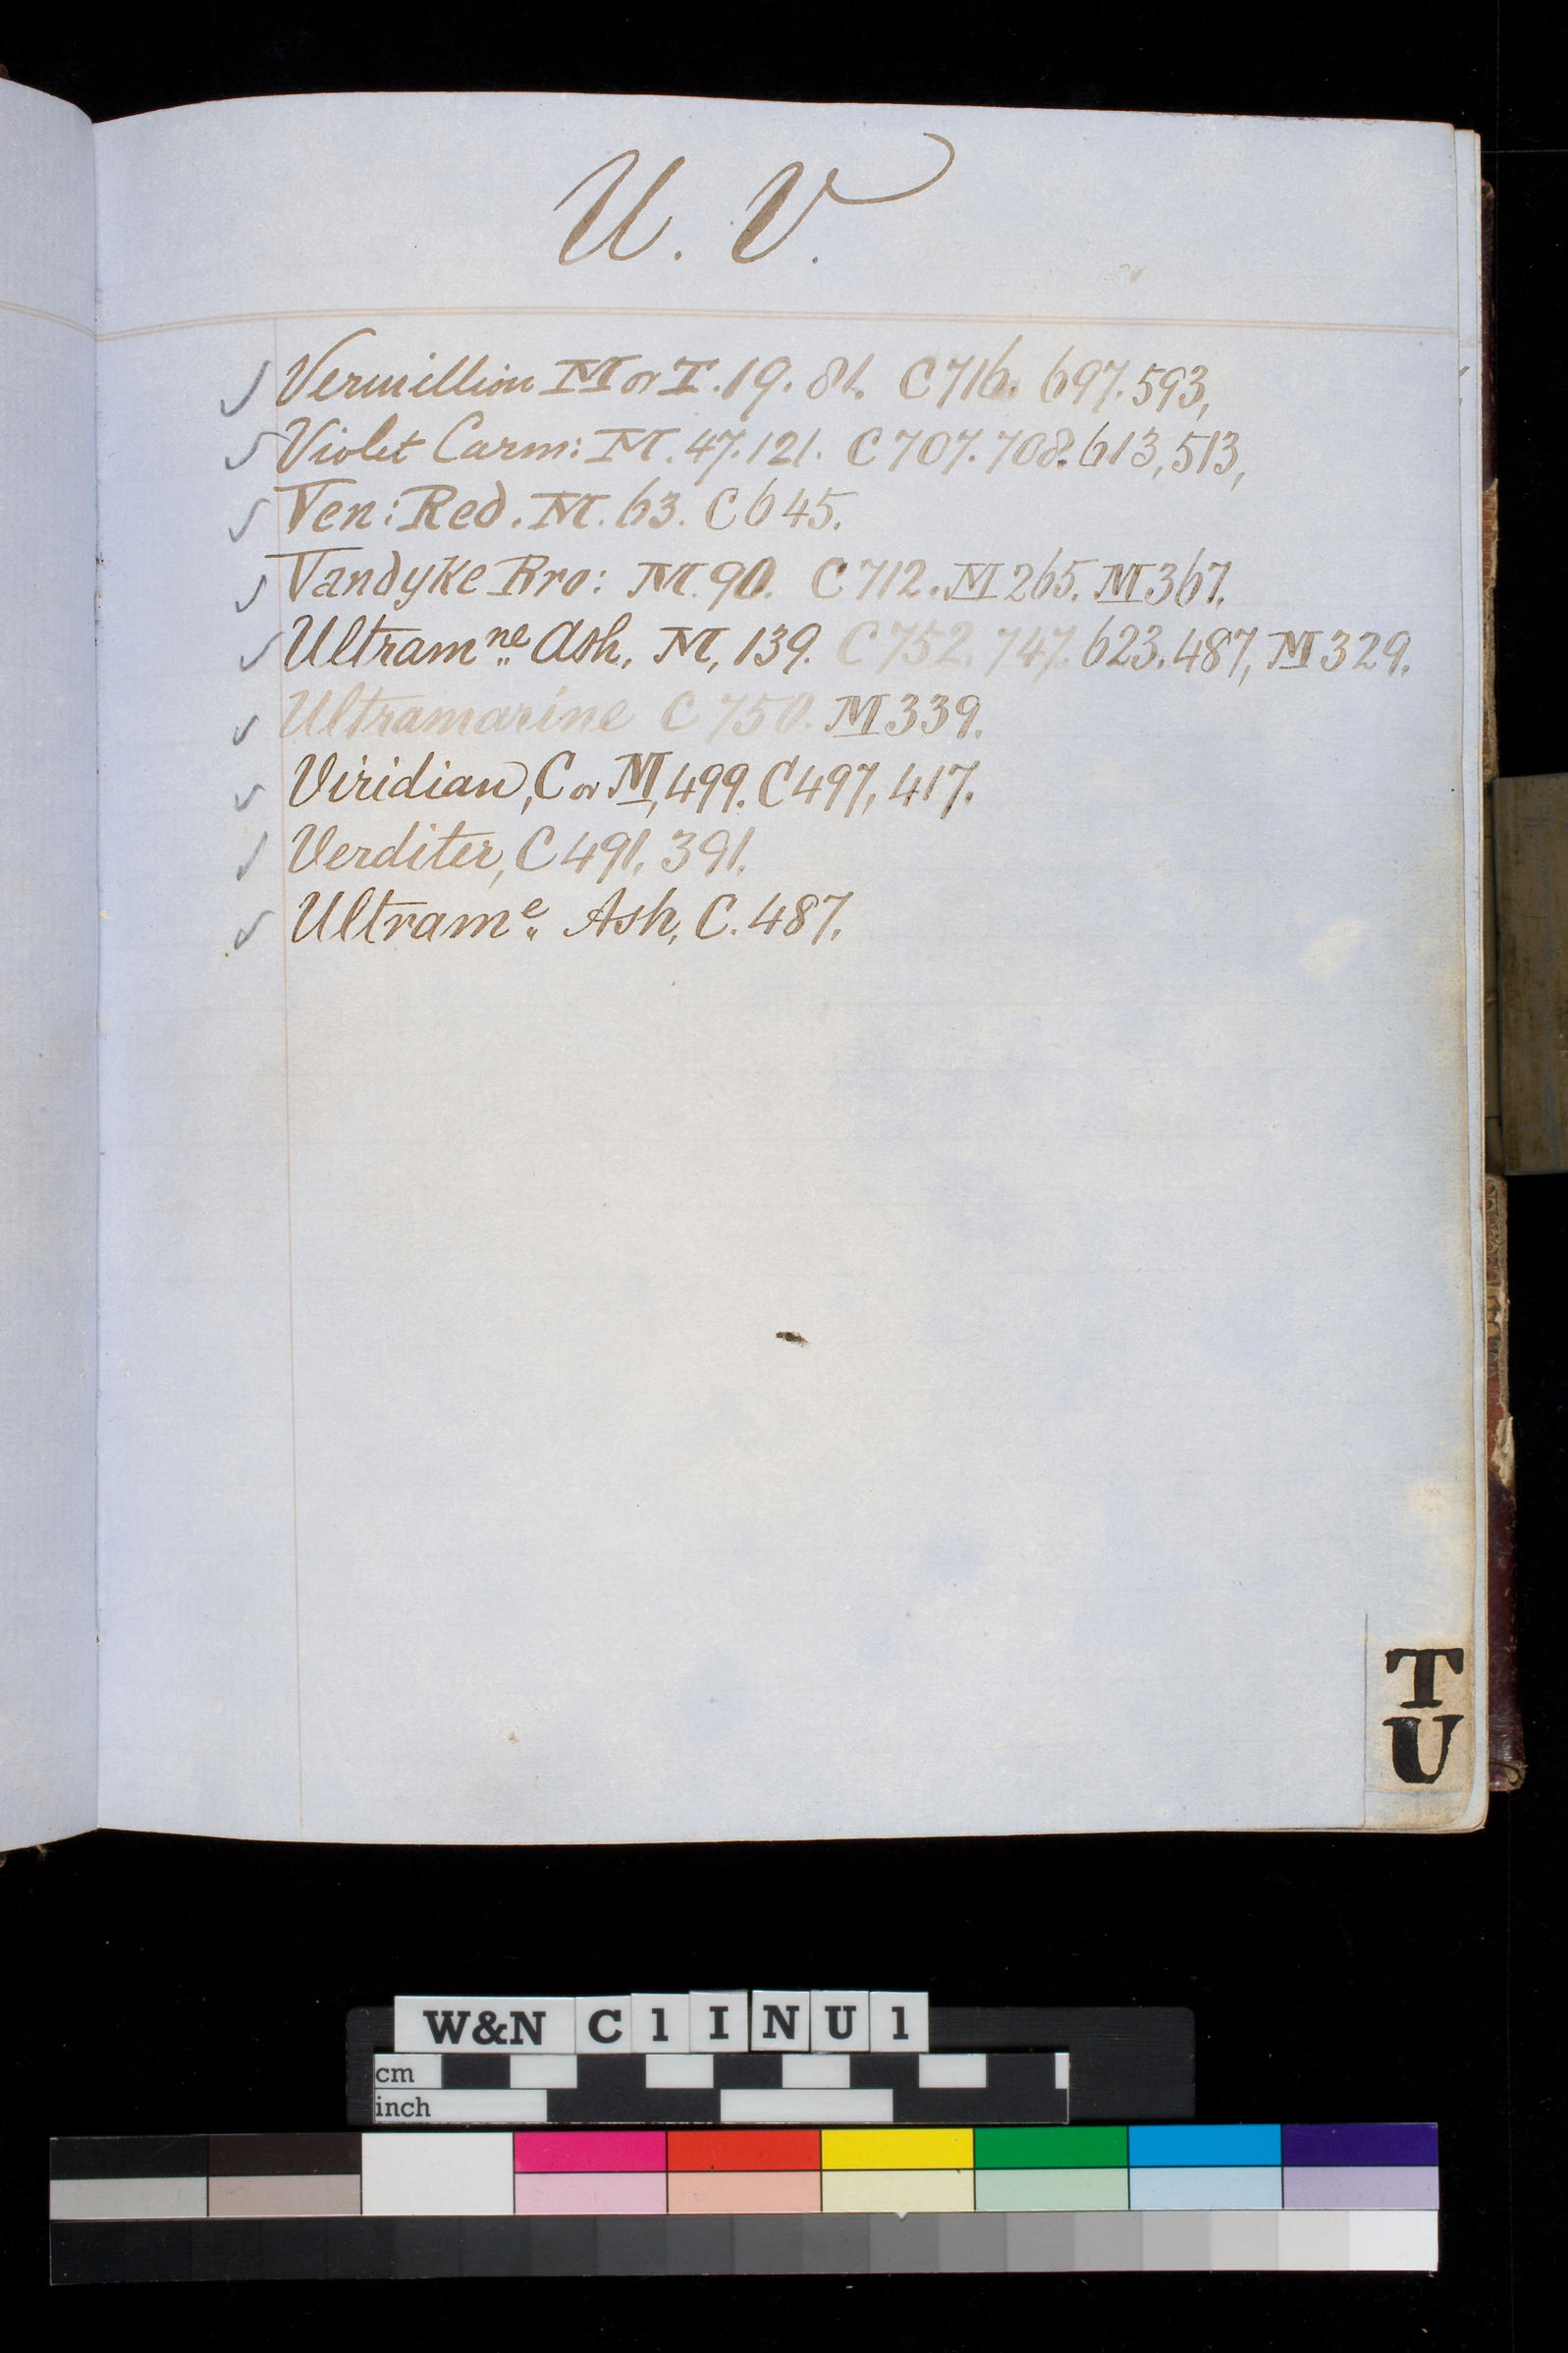 U. V.
✓ Vermillion M or T. 19. 81. C 716. 697. 593,
✓ Violet Carm: M. 47. 121. C 707. 708. 613, 513,
✓ Ven: Red. M. 63. C 645.
✓ Vandyke Bro: M. 90. C 712. M 265. M 367.
✓ Ultram ne Ash. M, 139. C 752. 747. 623. 487, M 329.
✓ Ultramarine C 750. M 339.
✓ Viridian, C or M, 499. C 497, 417.
✓ Verditer, C 491, 391.
✓ Ultram e Ash, C. 487.
T
U
W&N C 1 I N U 1
cm
inch